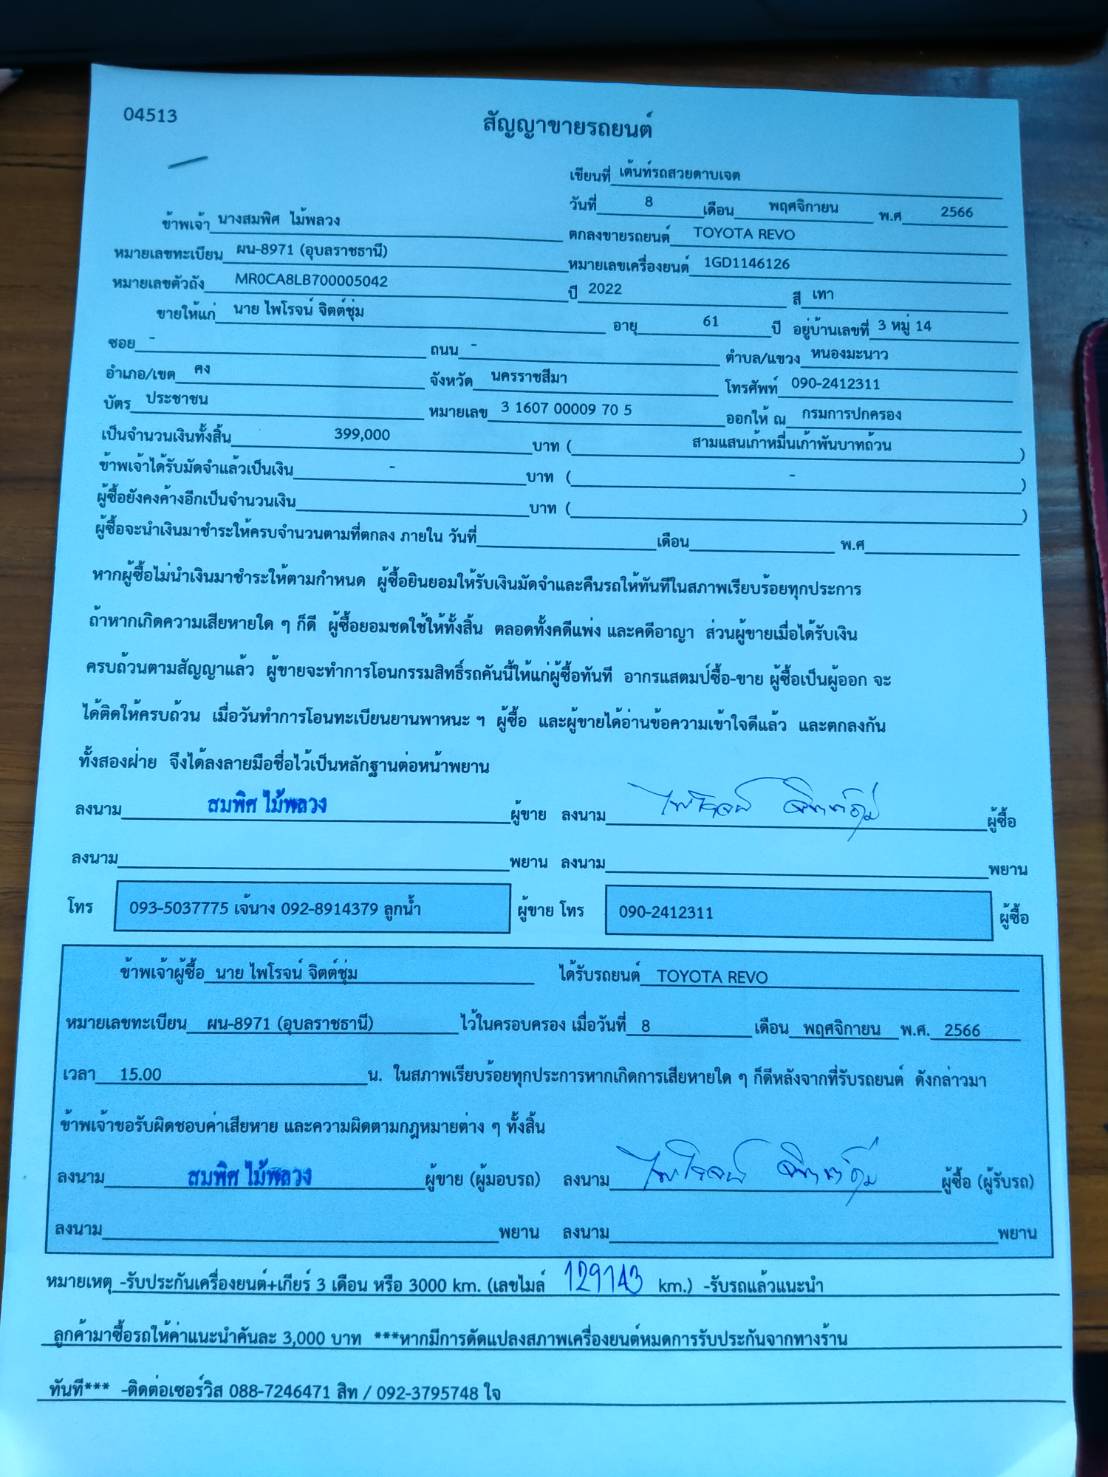 04513
สัญญาขายรถยนต์
เขียนที่ เต้นท์รถสวยดาบเจต
วันที่ 8 เดือน พฤศจิกายน พ.ศ 2566
ข้าพเจ้า นางสมพิศ ไม้พลวง ตกลงขายรถยนต์ TOYOTA REVO
หมายเลขทะเบียน ผน-8971 (อุบลราชธานี) หมายเลขเครื่องยนต์ 1GD1146126
หมายเลขตัวถัง MR0CA8LB700005042 ปี 2022 สี เทา
ขายให้แก่ นาย ไพโรจน์ จิตต์ชุ่ม อายุ 61 ปี อยู่บ้านเลขที่ 3 หมู่ 14
ซอย - ถนน - ตำบล/แขวง หนองมะนาว
อำเภอ/เขต คง จังหวัด นครราชสีมา โทรศัพท์ 090-2412311
บัตร ประชาชน หมายเลข 3 1607 00009 70 5 ออกให้ ณ กรมการปกครอง
เป็นจำนวนเงินทั้งสิ้น 399,000 บาท ( สามแสนเก้าหมื่นเก้าพันบาทถ้วน )
ข้าพเจ้าได้รับมัดจำแล้วเป็นเงิน - บาท ( - )
ผู้ซื้อยังคงค้างอีกเป็นจำนวนเงิน บาท ( )
ผู้ซื้อจะนำเงินมาชำระให้ครบจำนวนตามที่ตกลง ภายใน วันที่ เดือน พ.ศ
หากผู้ซื้อไม่นำเงินมาชำระให้ตามกำหนด ผู้ซื้อยินยอมให้รับเงินมัดจำและคืนรถให้ทันทีในสภาพเรียบร้อยทุกประการ
ถ้าหากเกิดความเสียหายใด ๆ ก็ดี ผู้ซื้อยอมชดใช้ให้ทั้งสิ้น ตลอดทั้งคดีแพ่ง และคดีอาญา ส่วนผู้ขายเมื่อได้รับเงิน
ครบถ้วนตามสัญญาแล้ว ผู้ขายจะทำการโอนกรรมสิทธิ์รถคันนี้ให้แก่ผู้ซื้อทันที อากรแสตมป์ซื้อ-ขาย ผู้ซื้อเป็นผู้ออก จะ
ได้ติดให้ครบถ้วน เมื่อวันทำการโอนทะเบียนยานพาหนะ ฯ ผู้ซื้อ และผู้ขายได้อ่านข้อความเข้าใจดีแล้ว และตกลงกัน
ทั้งสองฝ่าย จึงได้ลงลายมือชื่อไว้เป็นหลักฐานต่อหน้าพยาน
ลงนาม สมพิศ ไม้พลวง ผู้ขาย ลงนาม ไพโรจน์ จิตต์ชุ่ม ผู้ซื้อ
ลงนาม พยาน ลงนาม พยาน
โทร 093-5037775 เจ้นาง 092-8914379 ลูกน้ำ ผู้ขาย โทร 090-2412311 ผู้ซื้อ
ข้าพเจ้าผู้ซื้อ นาย ไพโรจน์ จิตต์ชุ่ม ได้รับรถยนต์ TOYOTA REVO
หมายเลขทะเบียน ผน-8971 (อุบลราชธานี) ไว้ในครอบครอง เมื่อวันที่ 8 เดือน พฤศจิกายน พ.ศ. 2566
เวลา 15.00 น. ในสภาพเรียบร้อยทุกประการหากเกิดการเสียหายใด ๆ ก็ดีหลังจากที่รับรถยนต์ ดังกล่าวมา
ข้าพเจ้าขอรับผิดชอบค่าเสียหาย และความผิดตามกฎหมายต่าง ๆ ทั้งสิ้น
ลงนาม สมพิศ ไม้พลวง ผู้ขาย (ผู้มอบรถ) ลงนาม ไพโรจน์ จิตต์ชุ่ม ผู้ซื้อ (ผู้รับรถ)
ลงนาม พยาน ลงนาม พยาน
หมายเหตุ -รับประกันเครื่องยนต์+เกียร์ 3 เดือน หรือ 3000 km. (เลขไมล์ 129143 km.) -รับรถแล้วแนะนำ
ลูกค้ามาซื้อรถให้ค่าแนะนำคันละ 3,000 บาท ***หากมีการดัดแปลงสภาพเครื่องยนต์หมดการรับประกันจากทางร้าน
ทันที*** -ติดต่อเซอร์วิส 088-7246471 สิท / 092-3795748 ใจ